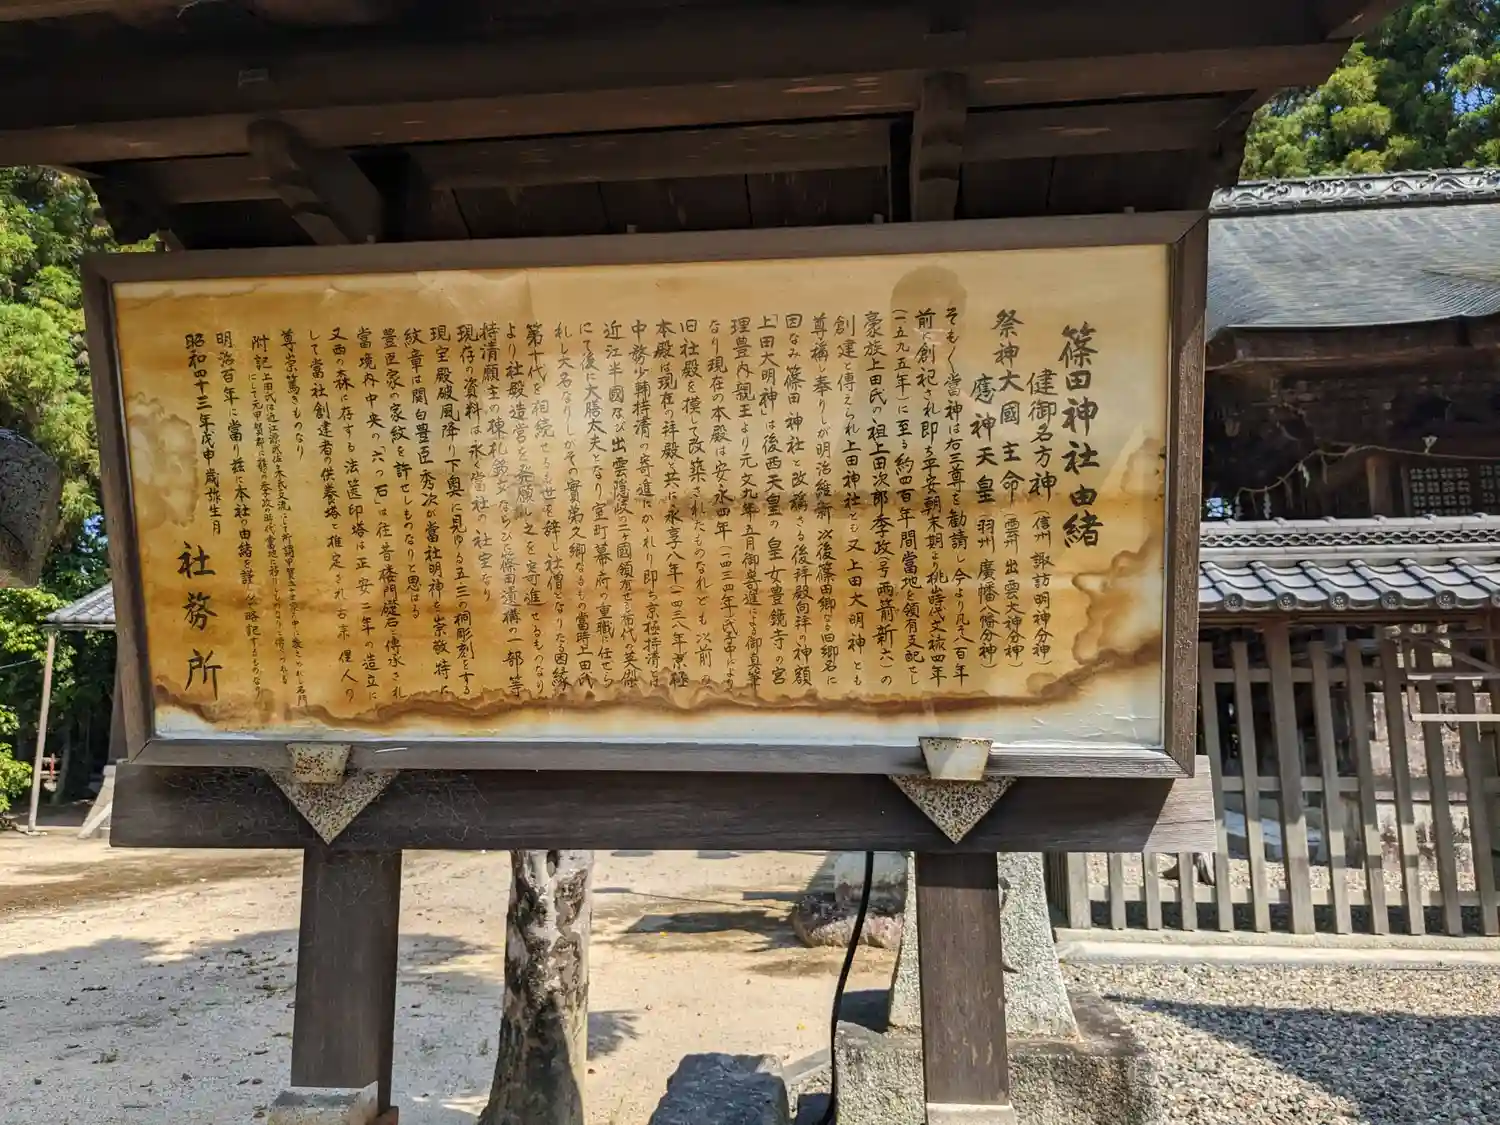 篠田神社由緒
健御名方神（信州 諏訪明神分神）
祭神大國主命（雲州 出雲大神分神）
應神天皇（羽州 廣幡八幡分神）
そもそも當神は右三尊を勧請し今より凡そ八百年
前に創祀され即ち平安朝末期より桃山時代文禄四年
（一五九五年）に至る約四百年間當地を領有支配せし
豪族上田氏の祖上田次郎季政（号西箭新六）の
創建と傳えられ上田神社とも又上田大明神とも
尊稱し奉りしが明治維新次後篠田郷なる田郷名に
因なみ篠田神社と改稱さる後拝殿向拝の神額
「上田大明神」は後西天皇の皇女豊鏡寺の宮
理豊内親王より元文九年五月御寄進による御真筆
なり現在の本殿は安永四年
旧社殿を模して改築されたものなれども次前の
本殿は現在の拝殿と共に永享八年（一四三八年）京極
中務少輔持清の寄進にかれり即ち京極持清とは
近江半國ならび出雲隠岐の二ヶ國領有せる希代の英傑
にて後に大膳大夫となり室町幕府の重職に任せら
れし大名なりしがその實弟久郷なるもの當時上田氏
第十代を相続せるも世を辞し社僧となりたる因縁
より社殿造営を発願し之を寄進せるものなり
持清願主の棟札第文ならびに篠田遺構の一部等
現存の資料は永く當社の社宝なり
現宝殿破風降り下奥に見ゆる五三の桐彫刻をする
紋章は関白豊臣秀次が當社明神を崇敬特に
豊臣家の家紋を許せしものなりと思はる
當境内中央の「六つ石」は往昔楼門礎石と傳承され
又西の森に存する法篋印塔は正安二年の造立に
して當社創建者の供養塔と推定され古来 俚人の
尊崇篤きものなり
附記 上田氏は近江源氏佐々木氏支流にして所謂甲賀五十三家の中に数えられし名門
にして元甲賀郡に
明治百年に當り茲に本社の由緒を謹んで略記するものなり
昭和四十三年戊申歳弥生月
社務所